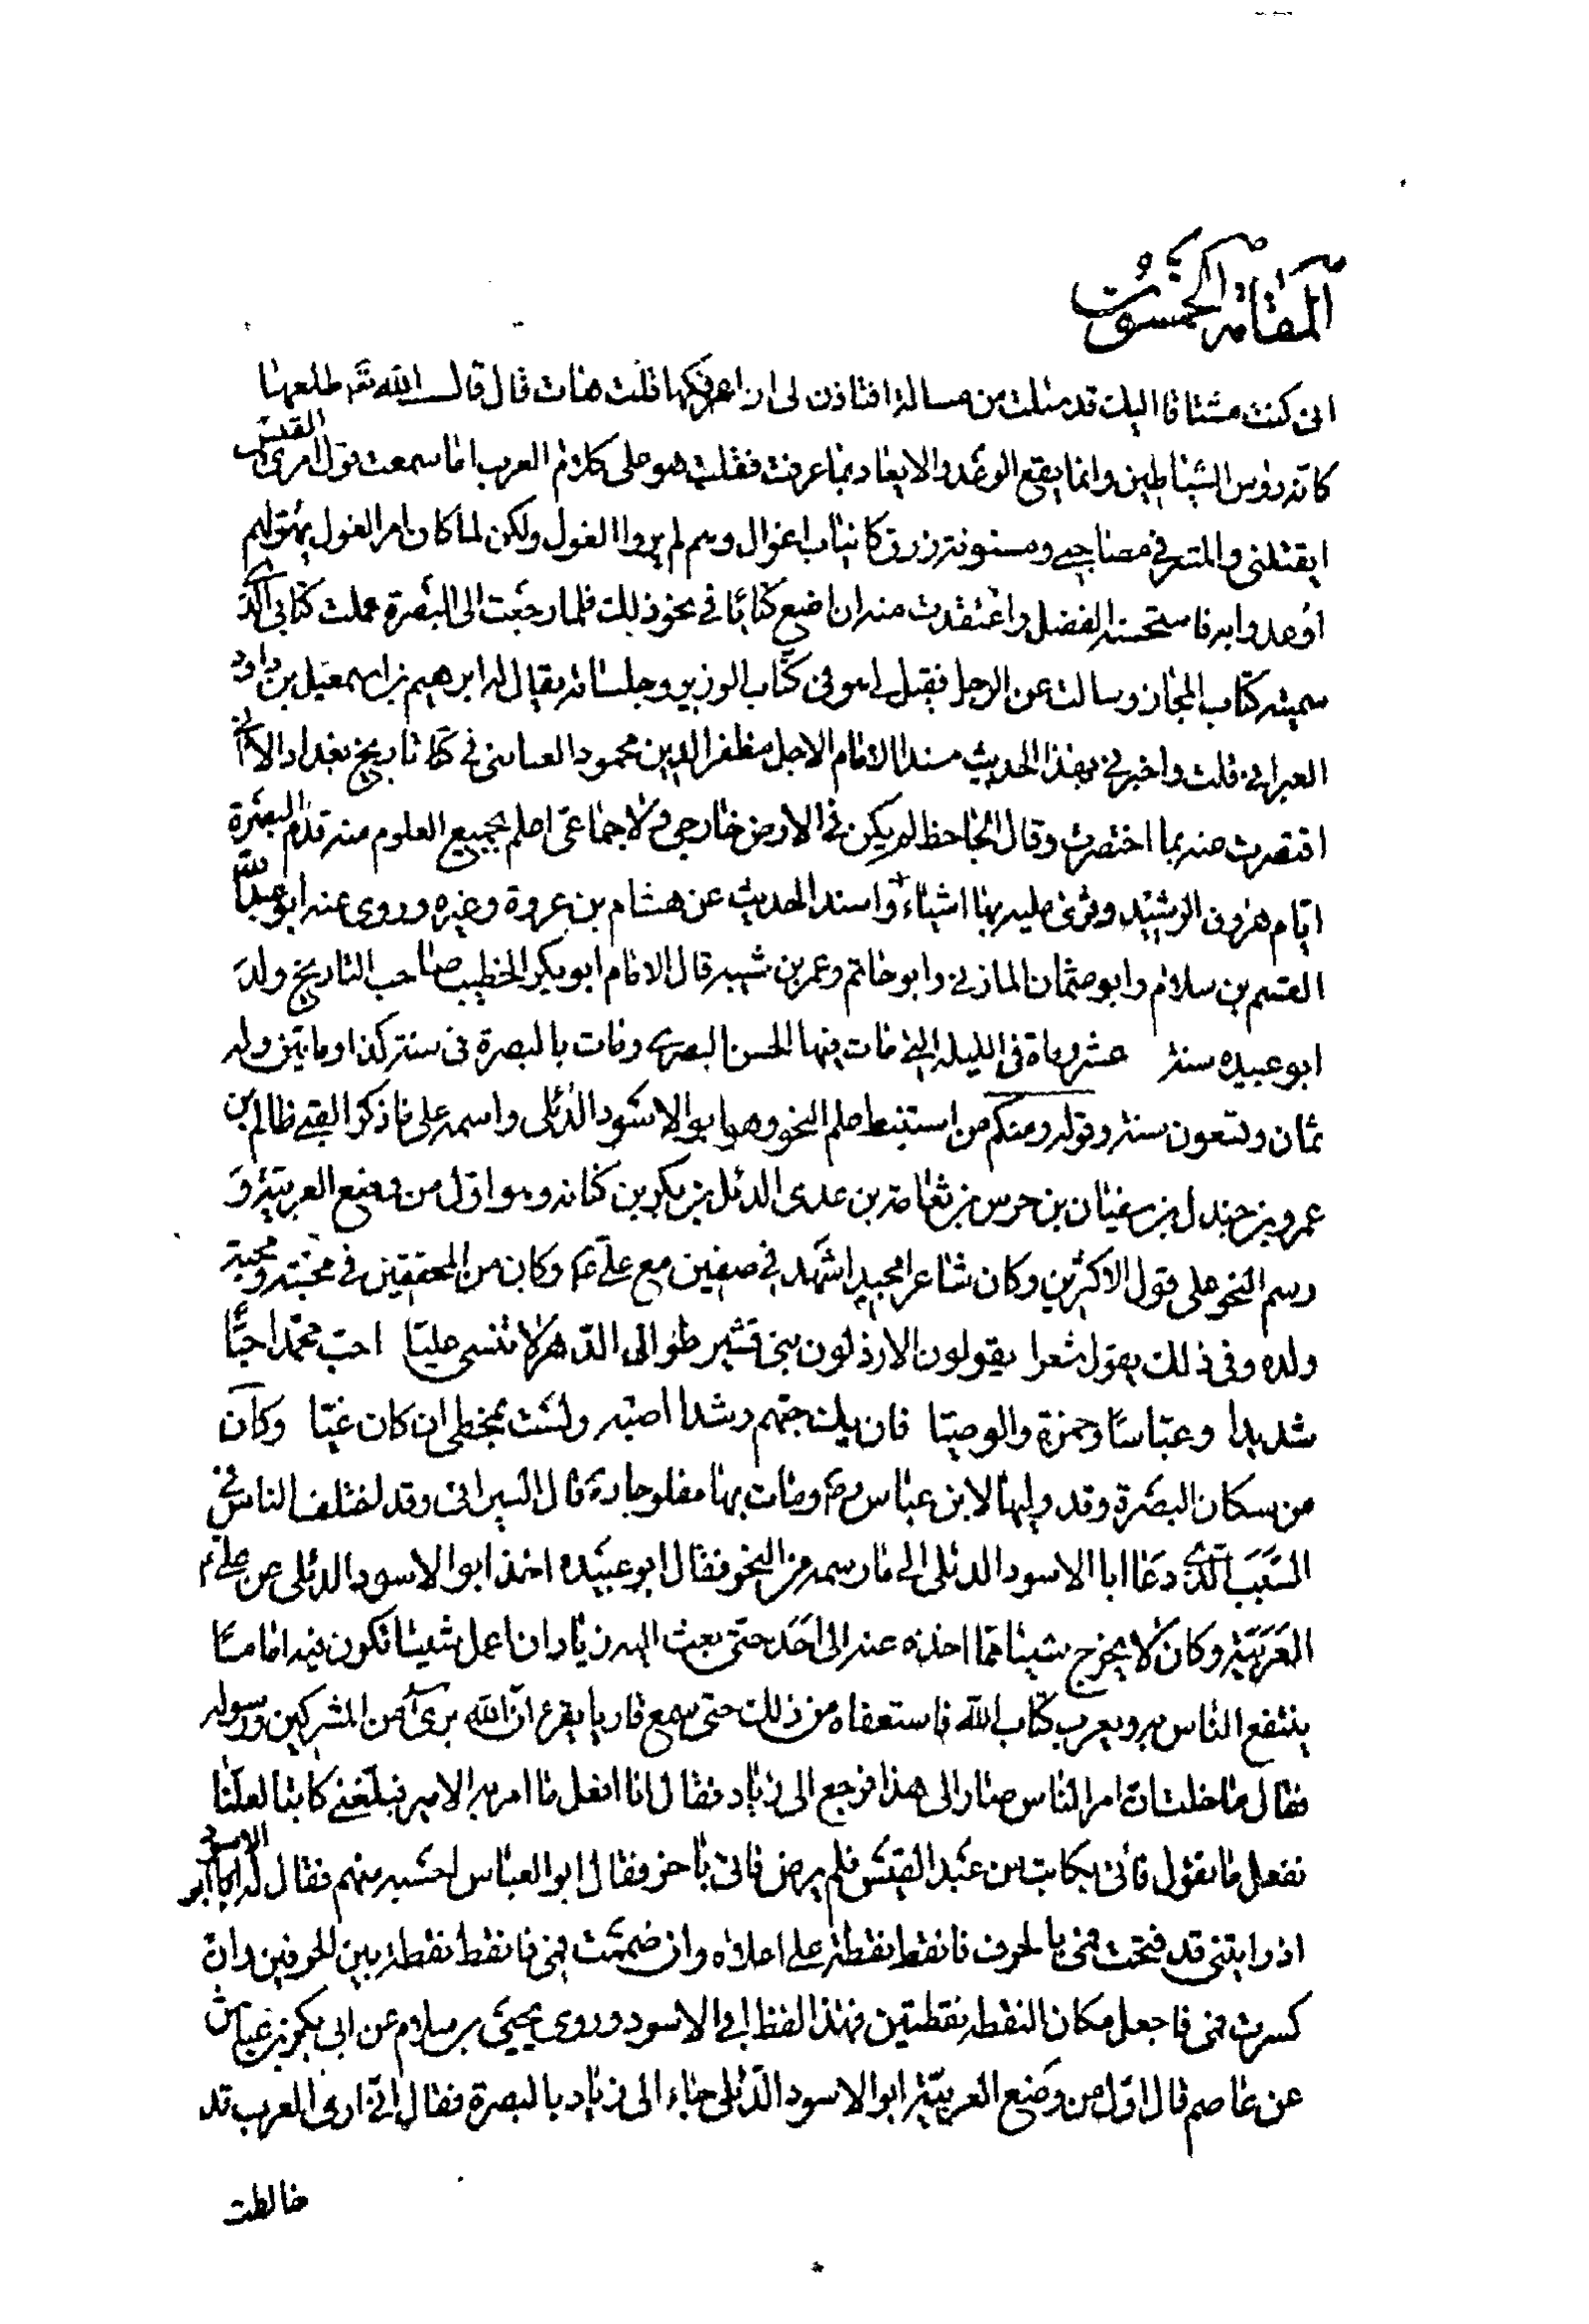 المقامة الخمسون
انی كنت مشتاقا اليك قد سئلت من مسالة افتاذن لی ان اعرفكها قلت هات قال قال الله تعم طلعها
كانه رؤس الشياطين وانما يقع الوعد والايعاد بما عرف فقلت هو علی كلام العرب اما سمعت قول امرئ القيس
ايقتلنی والمشرفی مضاجعی ومسنونة زرق كانياب اغوال وهم لم يروا الغول ولكن لما كان امر الغول يهولهم
اوعدوا به فاستحسنه الفضل واعتقدت منه ان اضع كتابا فی نحو ذلك فلما رجعت الی البصرة عملت كتابی الذی
سميته كتاب المجاز وسالت عن الرجل فقيل لی هو فی كتاب الوزير وجلسائه يقال له ابرهيم بن اسمعيل بن داود
العبرانی قلت واخبرنی بهذا الحديث مسندا الامام الاجل مظفر الدين محمود العباسی فی كتاب تاريخ بغداد الا انی
اقتصرت منه بما اختصرت وقال الجاحظ لم يكن فی الارض خارجی ولا جماعی اعلم بجميع العلوم منه قدم البصرة
ايام هرون الرشيد وقرئ عليه بها اشياء واسند الحديث عن هشام بن عروة وغيره وروی عنه ابو عبيد الله
القسم بن سلام وابو عثمان المازنی وابو حاتم وعمر بن شبه قال الامام ابو بكر الخطيب صاحب التاريخ ولد
ابو عبيده سنة عشر وماة فی الليلة التی مات فيها الحسن البصری ومات بالبصرة فی سنة كذا ومايتين وله
ثمان وتسعون سنة وقوله ومنكم من استنبط علم النحو وهو ابو الاسود الدئلی واسمه علی ما ذكر القتبی ظالم بن
عمرو بن جندل بن سفيان بن حرس بن ثعامة بن عدی الدئل بن بكر بن كنانه وهو اول من وضع العربية و
رسم النحو علی قول الاكثرين وكان شاعرا مجيدا شهد فی صفين مع علی عم وكان من المحققين فی محبته ومحبة
ولده وفی ذلك يقول شعرا يقولون الارذلون بنی قشير طوالی الدهر لا تنسی عليا احب محمدا حبا
شديدا وعباسا وحمزة والوصيا فان يك حبهم رشدا اصبه ولست بمخطی ان كان غيا وكان
من سكان البصرة وقد وليها لابن عباس رض ومات بها مفلوجا رحه قال السيرافی وقد اختلف الناس فی
السبب الذی دعا ابا الاسود الدئلی الی ما رسمه من النحو فقال ابو عبيده اخذ ابو الاسود الدئلی عن علی عم
العربية وكان لا يخرج شيئا مما اخذه عنه الی احد حتی بعث اليه زياد ان اعمل شيئا تكون فيه اماما
ينتفع الناس به ويعرب كتاب الله فاستعفاه من ذلك حتی سمع قاريا يقرء ان الله بریء من المشركين ورسوله
فقال ما ظننت ان امر الناس صار الی هذا فرجع الی زياد فقال انا افعل ما امر به الامير فبلغنی كاتبا لعلنا
نفعل ما نقول فاتی بكاتب من عبد القيس فلم يرض فاتی باخر فقال ابو العباس احسبه منهم فقال له ابو الاسود
اذ رايتنی قد فتحت فمی بالحرف فانقط نقطة علی اعلاه وان ضممت فمی فانقط نقطة بين الحرفين وان
كسرت فمی فاجعل مكان النقطة نقطتين فهذا لفظ ابی الاسود وروی يحيی بن سلام عن ابی بكر بن عياش
عن عاصم قال اول من وضع العربية ابو الاسود الدئلی جاء الی زياد بالبصرة فقال انی اری العرب قد
خالطت